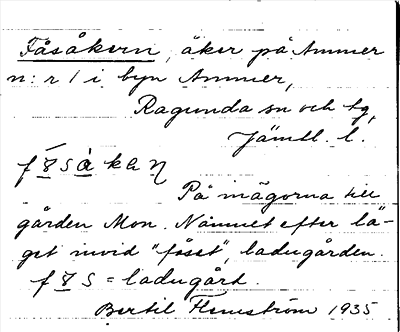 Fåsåkern, åker på Ammer
n:r 1 i byn Ammer,
Ragunda sn och tg,
Jämtl. l.
På mägorna till
gården Mon. Namnet efter lä-
get invid "fåset", ladugården.
= ladugård.
Bertil Flemström 1935